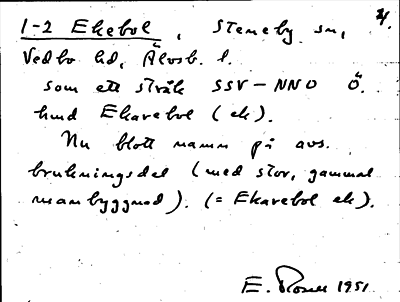 1-2 Ekebol, Steneby sn, 21.
Vedbo hd, Älvsb. l.
som ett stråk SSV-NNO Ö.
hud Ekarebol (ek).
Nu blott namn på avs.
brukningsdel (med stor, gammal
manbyggnad). (= Ekarebol ek).
E. Rosell 1951